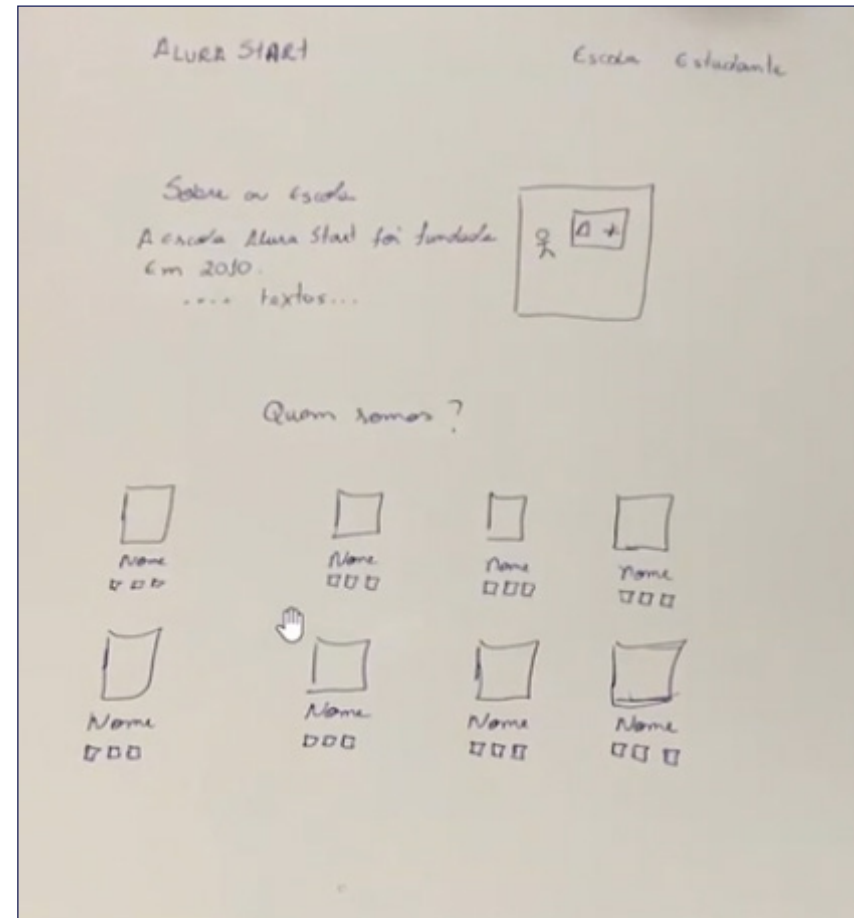 ALURA START Escola Estudante
Sobre a Escola
A escola Alura Start foi fundada
Em 2010.
.... textos...
Quem somos?
Nome Nome Nome Nome
Nome Nome Nome Nome